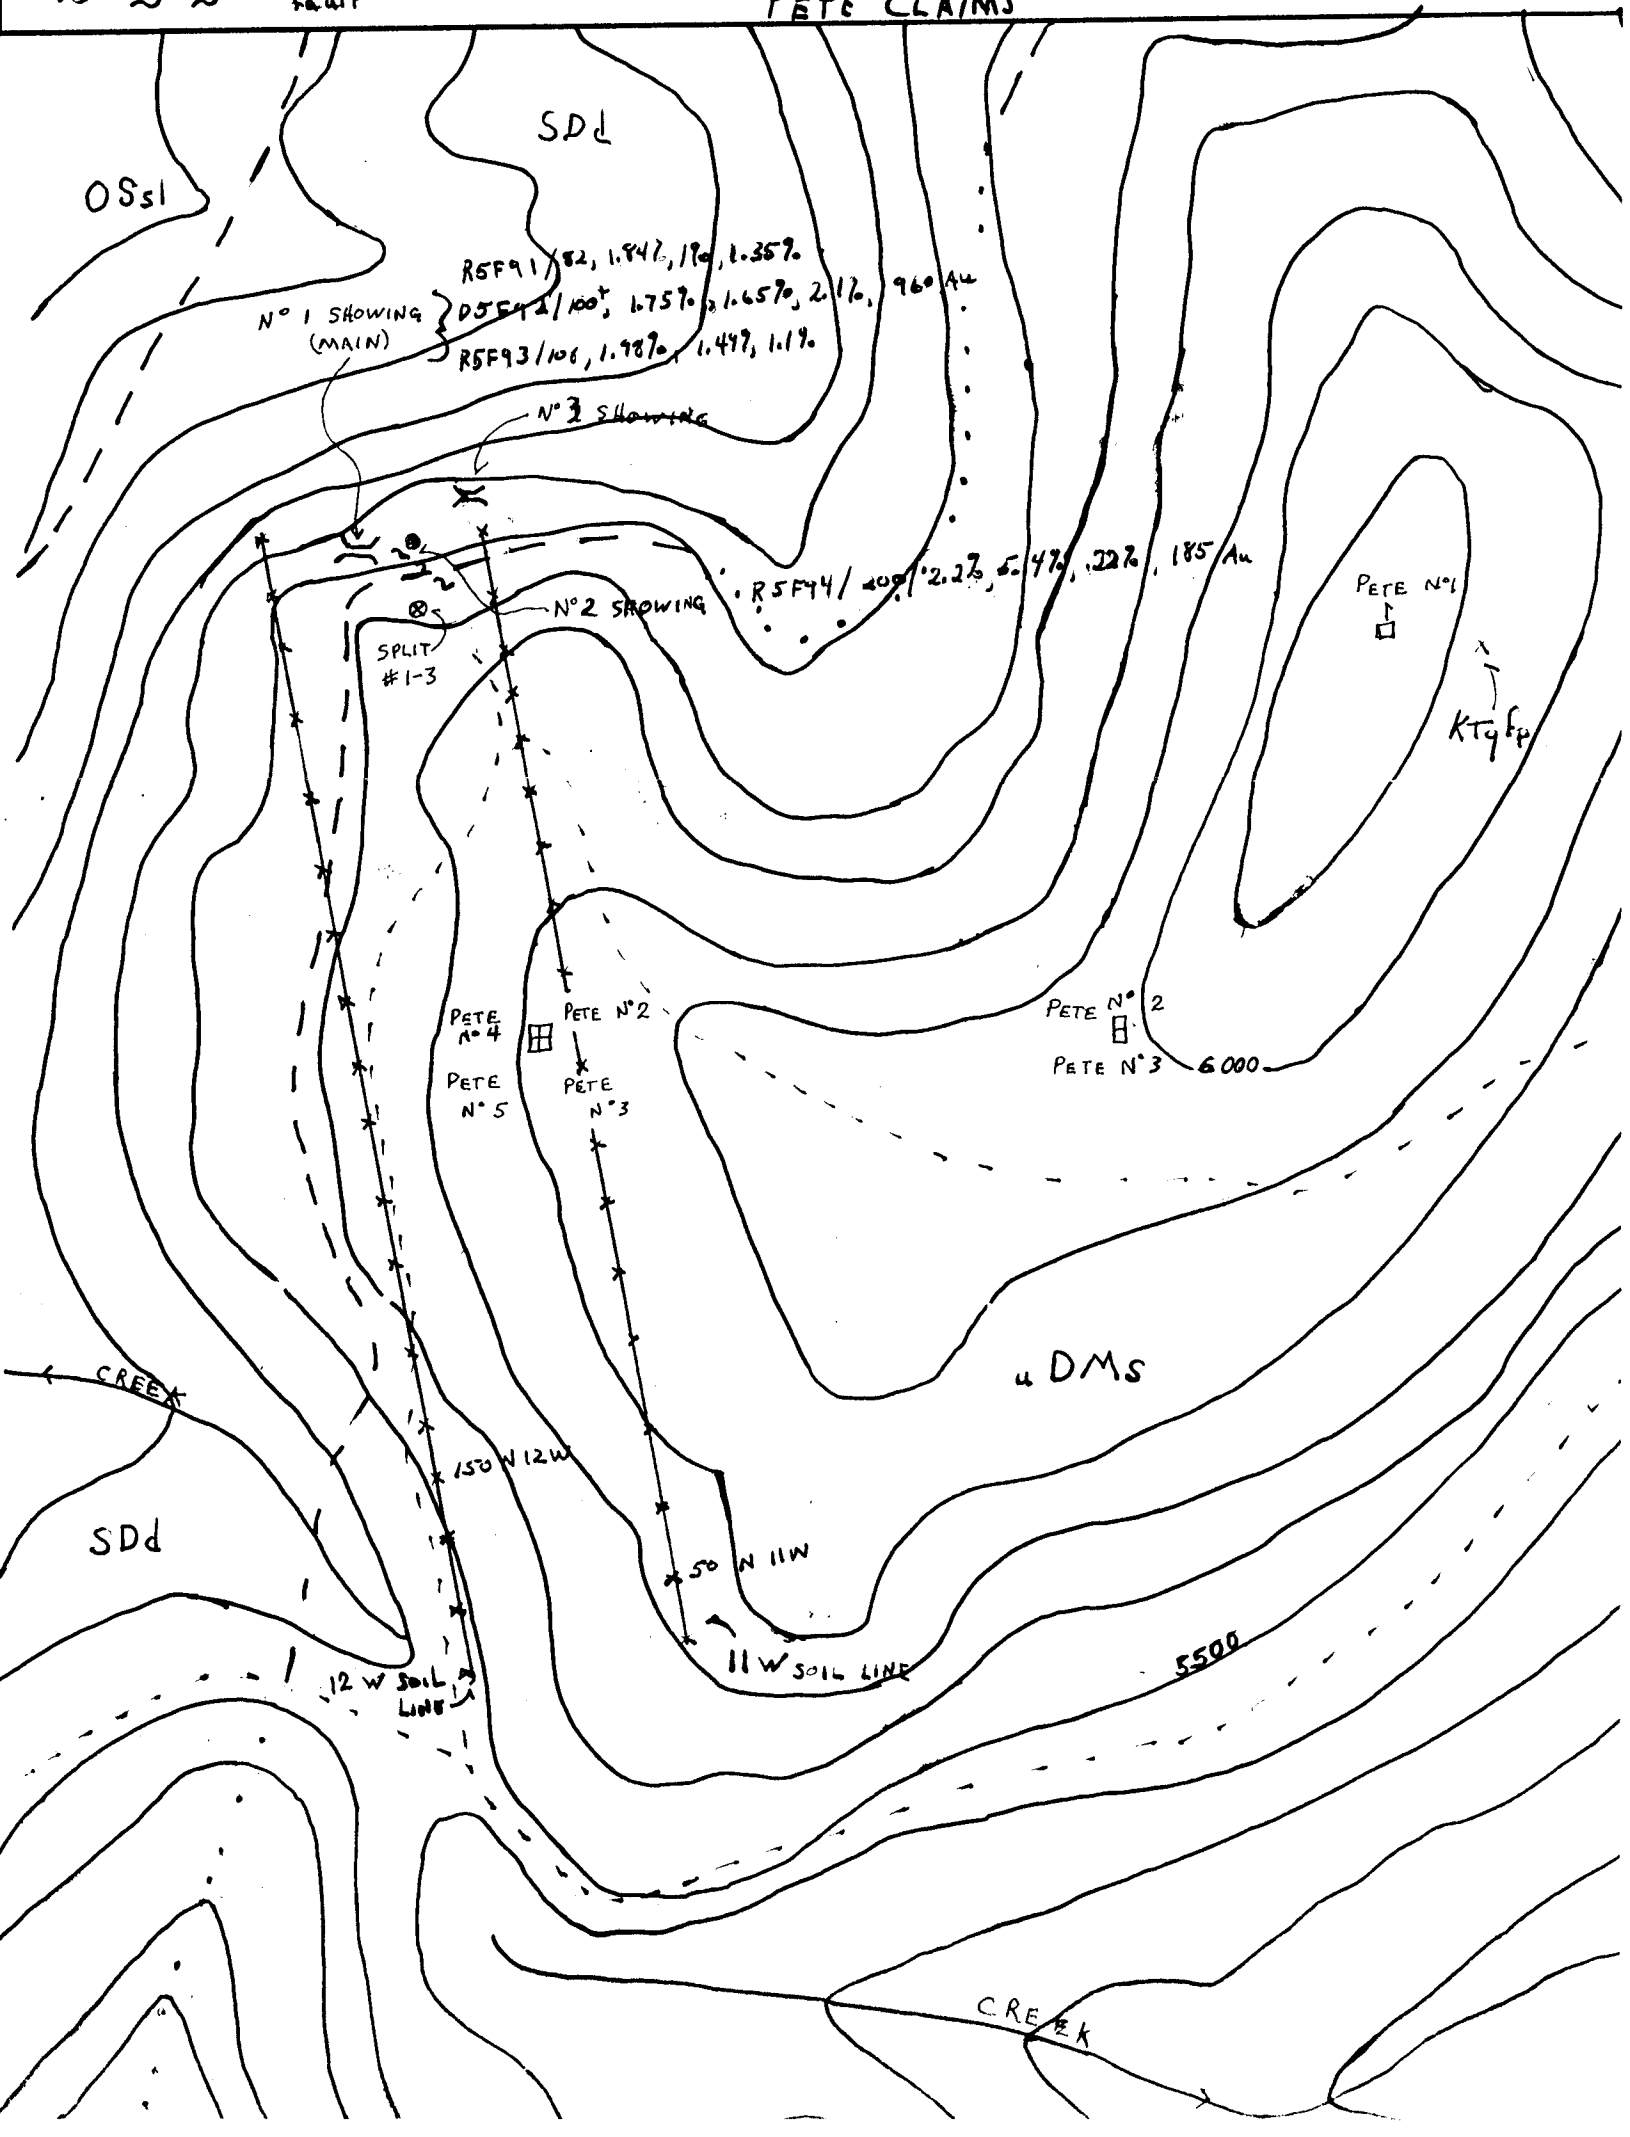 fault
PETE CLAIMS
SDd
OSsl
R5F91/82, 1.84%, 1%, 1.35%
N° 1 SHOWING
(MAIN)
1.75%, 1.65%, 2.1%, 960 Au
R5F93/106, 1.98%, 1.49%, 1.1%
SHOWING
R5F94/ 2.2%, 5.4%, .22%, 185 Au
N° 2 SHOWING
SPLIT
#1-3
PETE N°1
KTqfp
PETE
N° 4
PETE N° 2
PETE
N° 5
PETE
N° 3
PETE N° 2
PETE N° 3
6000
uDMs
CREEK
150 N 12W
SDd
50 N 11W
11W SOIL LINE
5500
12 W SOIL
LINE
CREEK